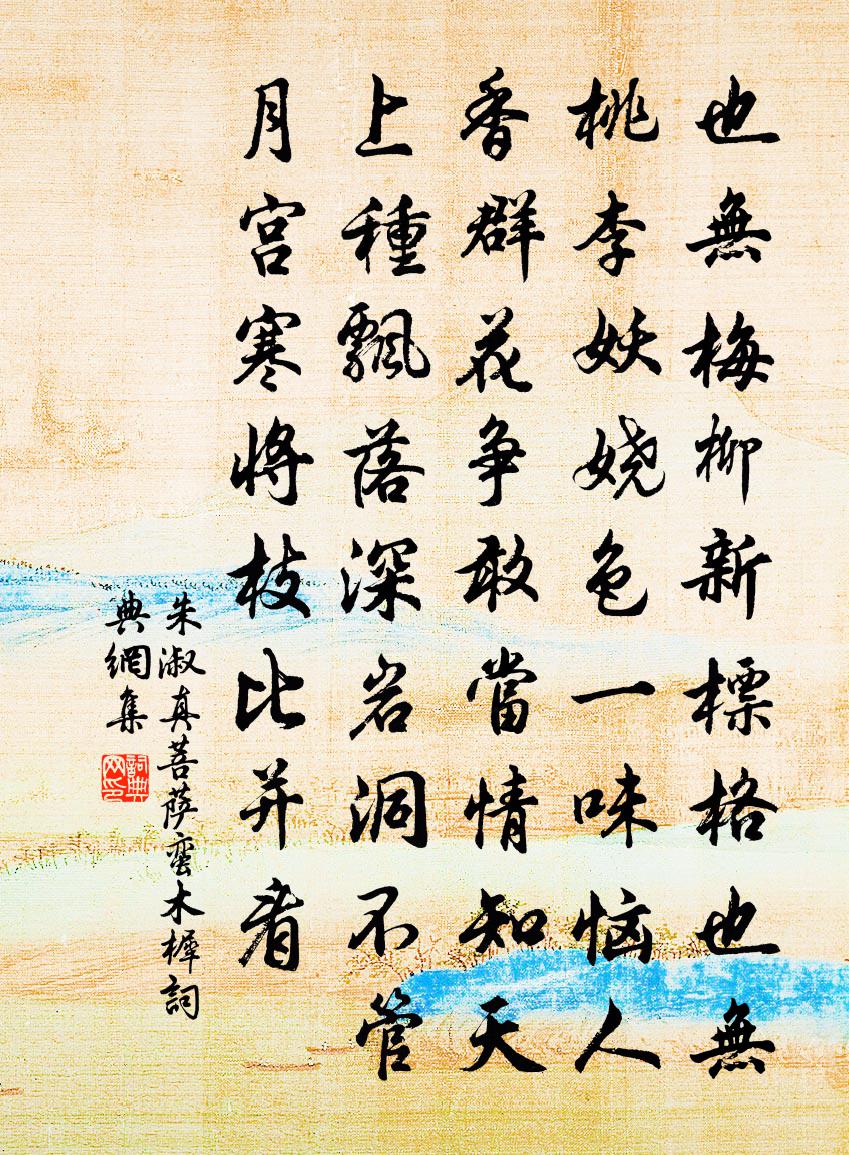 也無梅柳新標格也無
桃李妖娆色一味恼人
香群花争敢當情知天
上種飄落深岩洞不管
月宫寒将枝比并看
朱淑真菩萨蛮木樨詞
典網集
詞典網印